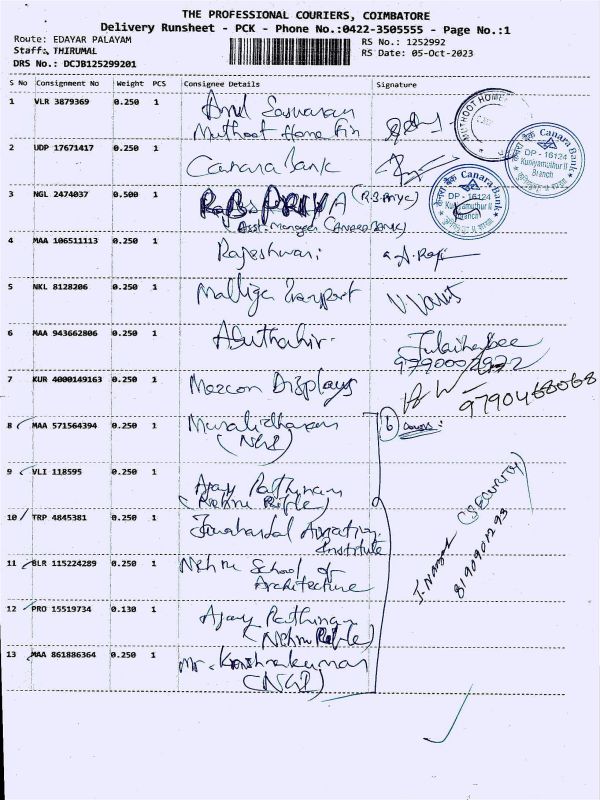 THE PROFESSIONAL COURIERS, COIMBATORE
Delivery Runsheet - PCK - Phone No.:0422-3505555 - Page No.:1
Route: EDAYAR PALAYAM
RS No.: 1252992
Staff: THIRUMAL
RS Date: 05-Oct-2023
DRS No.: DCJB125299201
S No Consignment No Weight PCS Consignee Details Signature
1 VLR 3879369 0.250 1
Muthoot Home Fin
MUTHOOT HOME
2 UDP 17671417 0.250 1 Canara Bank
Canara Bank
DP - 16124
Kuniyamuthur II
Branch
3 NGL 2474037 0.500 1 R.B. PRIYA (R.B. Priya)
Asst. Manager (CANARA BANK)
केनरा बैंक Canara Bank
DP - 16124
Kuniyamuthur II
Branch
4 MAA 106511113 0.250 1 Rajeshwari
5 NKL 8128206 0.250 1 Malliga Transport
6 MAA 943662806 0.250 1 Abuthahir
7 KUR 4000149163 0.250 1 Mezcon Displays
9790468068
8 MAA 571564394 0.250 1 Muralidharan
(NGI)
6 Covers:
9 VLI 118595 0.250 1 Ajay Rathinam
(Nehru )
10 TRP 4845381 0.250 1 Jawaharlal Aviation
Institute
11 BLR 115224289 0.250 1 Nehru School of
Architecture
(SECURITY)
12 PRO 15519734 0.130 1 Ajay Rathinam
(Nehru )
13 MAA 861886364 0.250 1 Mr. Krishnakumar
(NGI)